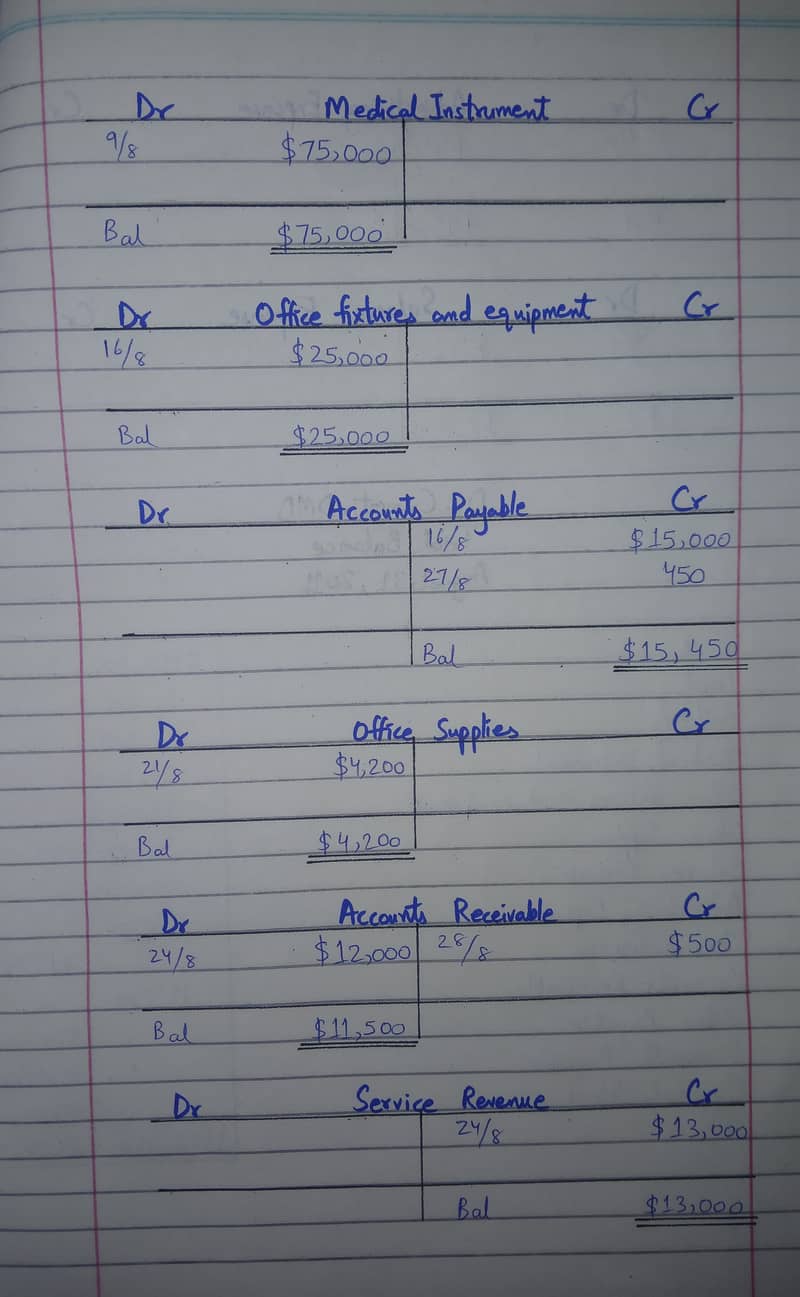 Dr Medical Instrument Cr
9/8 $75,000
Bal $75,000
Dr Office fixtures and equipment Cr
16/8 $25,000
Bal $25,000
Dr Accounts Payable Cr
16/8 $15,000
27/8 450
Bal $15,450
Dr Office Supplies Cr
21/8 $4,200
Bal $4,200
Dr Accounts Receivable Cr
24/8 $12,000 28/8 $500
Bal $11,500
Dr Service Revenue Cr
24/8 $13,000
Bal $13,000